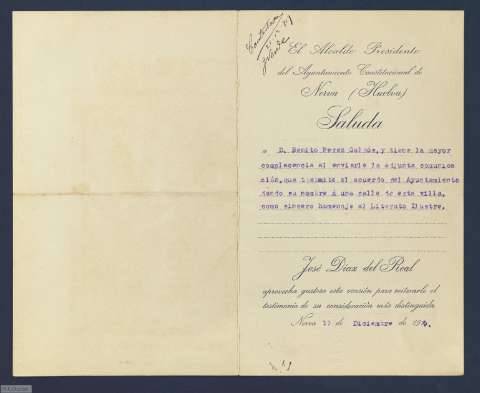 Contestada
El Alcalde Presidente
del Ayuntamiento Constitucional de
Nerva (Huelva)
Saluda
a D. Benito Perez Galdós, y tiene la mayor
complacencia al enviarle la adjunta comunica
ción, que trasmite el acuerdo del Ayuntamiento
dando su nombre á una calle de esta villa,
como sincero homenaje al Literato Ilustre.
José Díaz del Real
aprovecha gustoso esta ocasión para reiterarle el
testimonio de su consideración más distinguida.
Nerva de Diciembre de